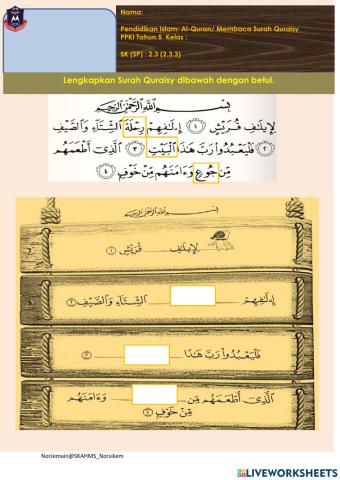 Nama:
Pendidikan Islam: Al-Quran/ Membaca Surah Quraisy
PPKI Tahun 5 Kelas :
SK (SP) : 2.3 (2.3.3)
Lengkapkan Surah Quraisy dibawah dengan betul.
بِسْمِ اللَّهِ الرَّحْمَٰنِ الرَّحِيمِ
لِإِيلَٰفِ قُرَيْشٍ ١ إِۦلَٰفِهِمْ رِحْلَةَ الشِّتَآءِ وَالصَّيْفِ
٢ فَلْيَعْبُدُوا۟ رَبَّ هَٰذَا الْبَيْتِ ٣ الَّذِىٓ أَطْعَمَهُم
مِّن جُوعٍ وَءَامَنَهُم مِّنْ خَوْفٍ ٤
بِسْمِ اللَّهِ الرَّحْمَٰنِ الرَّحِيمِ
لِإِيلَٰفِ قُرَيْشٍ ١
إِۦلَٰفِهِمْ الشِّتَآءِ وَالصَّيْفِ ٢
فَلْيَعْبُدُوا۟ رَبَّ هَٰذَا ٣
الَّذِىٓ أَطْعَمَهُم مِّن وَءَامَنَهُم
مِّنْ خَوْفٍ ٤
Notiemain@SKAHMS_Norsikem
LIVEWORKSHEETS